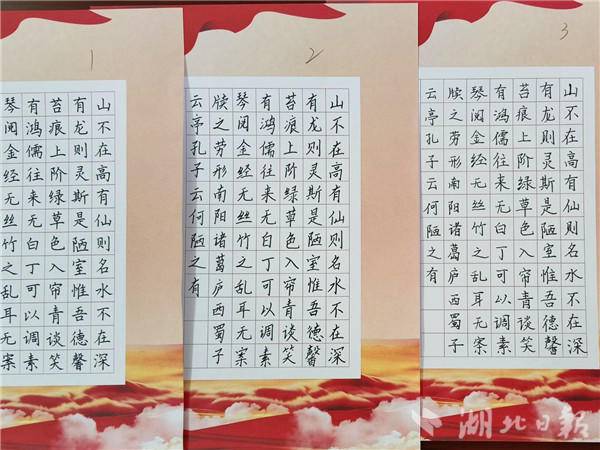 1
山不在高有仙则名水不在深
有龙则灵斯是陋室惟吾德馨
苔痕上阶绿草色入帘青谈笑
有鸿儒往来无白丁可以调素
琴阅金经无丝竹之乱耳无案
2
山不在高有仙则名水不在深
有龙则灵斯是陋室惟吾德馨
苔痕上阶绿草色入帘青谈笑
有鸿儒往来无白丁可以调素
琴阅金经无丝竹之乱耳无案
牍之劳形南阳诸葛庐西蜀子
云亭孔子云何陋之有
3
山不在高有仙则名水不在深
有龙则灵斯是陋室惟吾德馨
苔痕上阶绿草色入帘青谈笑
有鸿儒往来无白丁可以调素
琴阅金经无丝竹之乱耳无案
牍之劳形南阳诸葛庐西蜀子
云亭孔子云何陋之有
湖北日報